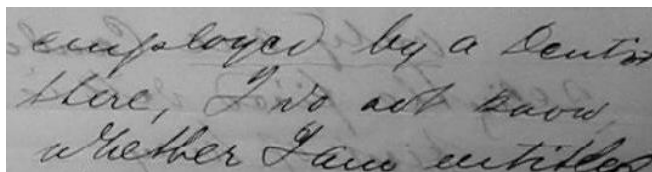 employed by a Dentist
there, I do not know
whether I am entitled